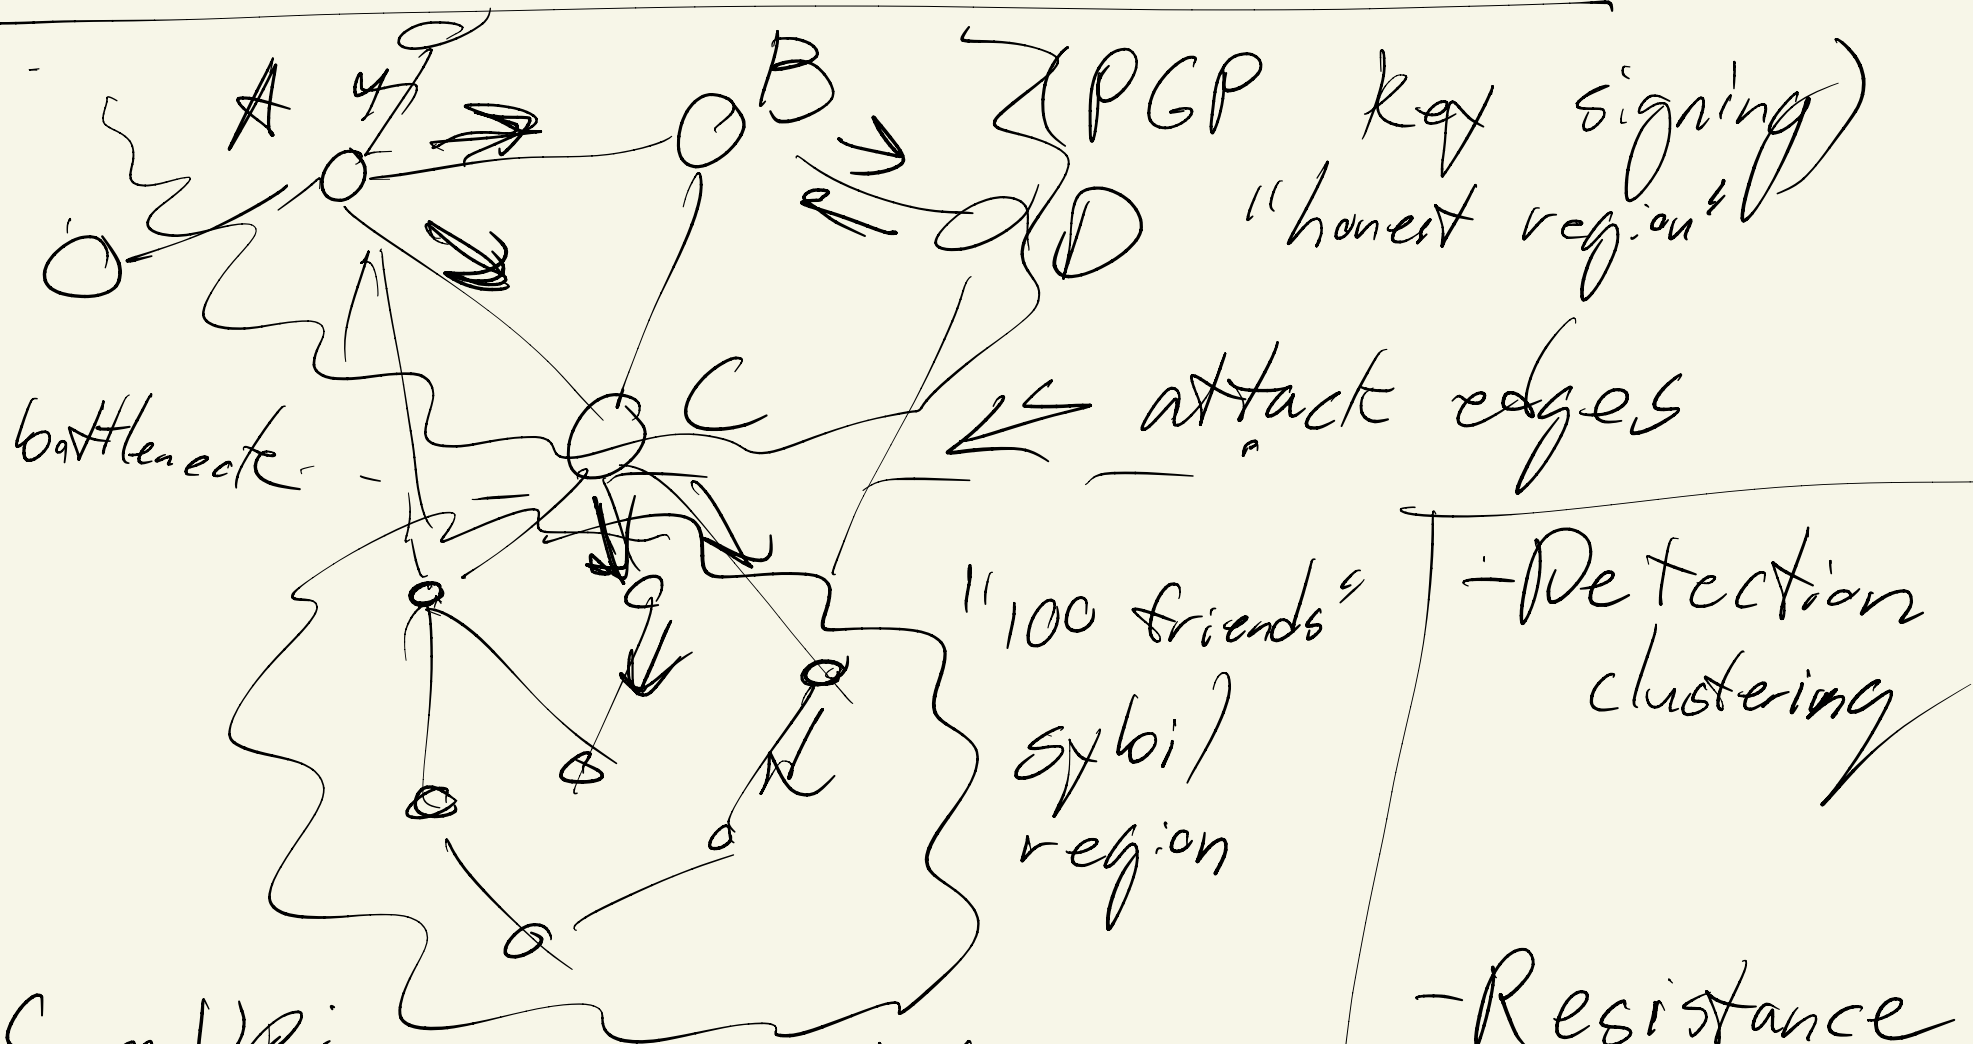 A
B
(PGP key signing)
"honest region"
D
C
attack edges
bottleneck
"100 friends"
sybil
region
- Detection
clustering
- Resistance